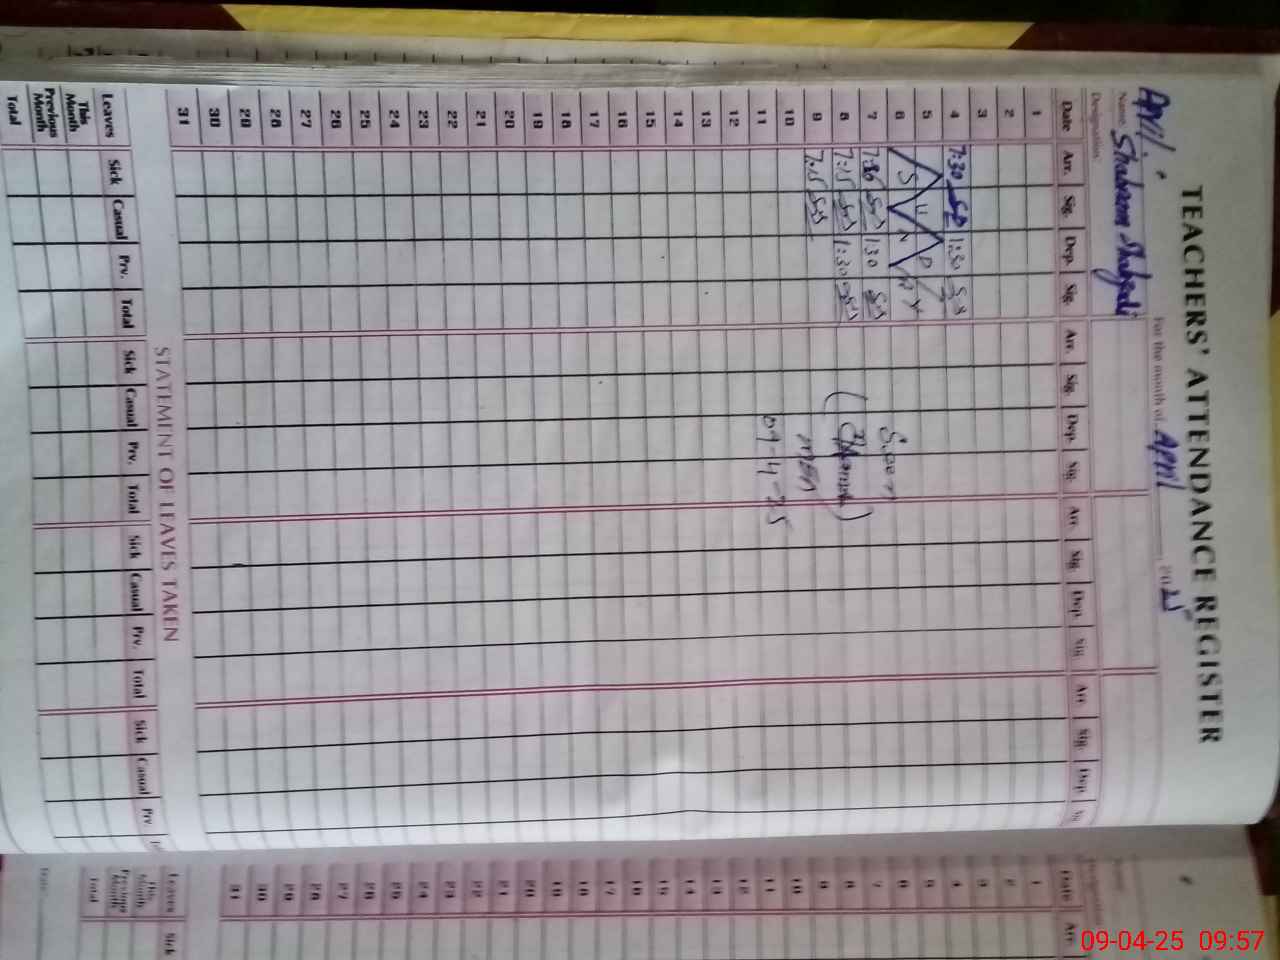 TEACHERS' ATTENDANCE REGISTER
April.
For the month of April 2025
Name Shabnam
Designation
Date Arr. Sig. Dep. Sig. Arr. Sig. Dep. Sig. Arr. Sig. Dep. Sig. Arr. Sig. Dep. Sig.
1
2
3
4 7:30 1:30
5 SUNDAY
6
7 7:30 1:30
8 7:15 1:30
9 7:15
10
11
12
13
14
15
16
17
18
19
20
21
22
23
24
25
26
27
28
29
30
31
Seen
MEA
09-4-25
STATEMENT OF LEAVES TAKEN
Leaves Sick Casual Prv. Total Sick Casual Prv. Total Sick Casual Prv. Total Sick Casual Prv.
This Month
Previous Month
Total
Date Arr.
1
2
3
4
5
6
7
8
9
10
11
12
13
14
15
16
17
18
19
20
21
22
23
24
25
26
27
28
29
30
31
Leaves Sick
This Month
Previous Month
Total
09-04-25 09:57